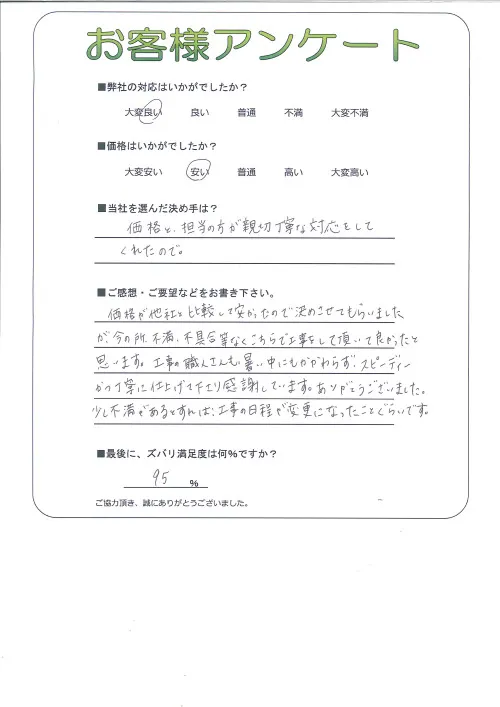 お客様アンケート
■弊社の対応はいかがでしたか？
大変良い 良い 普通 不満 大変不満
■価格はいかがでしたか？
大変安い 安い 普通 高い 大変高い
■当社を選んだ決め手は？
価格と、担当の方が親切丁寧な対応をして
くれたので。
■ご感想・ご要望などをお書き下さい。
価格が他社と比較して安かったので決めさせてもらいました
が、今の所、不満、不具合等なくこちらで工事をして頂いて良かったと
思います。工事の職人さんも暑い中にもかかわらず、スピーディー
かつ丁寧に仕上げて下さり感謝しています。ありがとうございました。
少し不満があるとすれば、工事の日程が変更になったことぐらいです。
■最後に、ズバリ満足度は何％ですか？
95 ％
ご協力頂き、誠にありがとうございました。